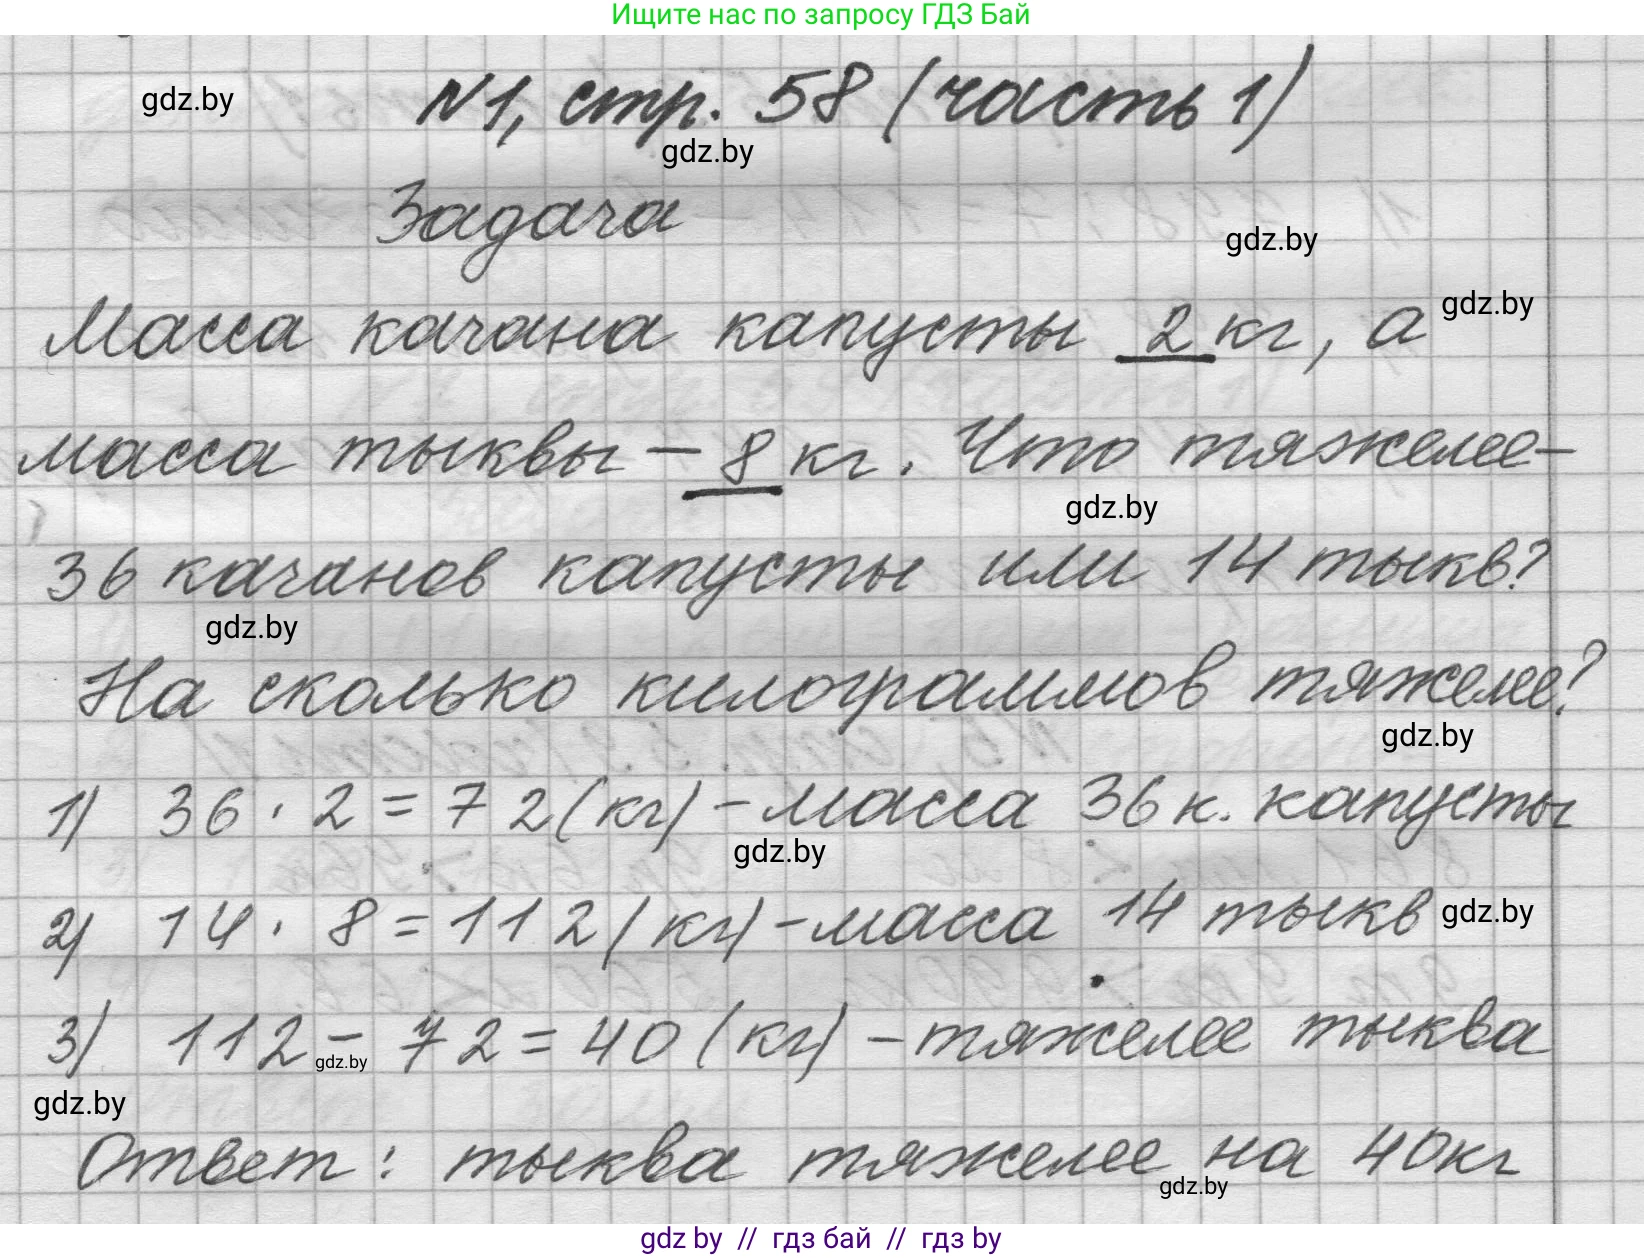 Ищите нас по запросу ГДЗ Бай
gdz.by
№1, стр. 58 (часть 1)
gdz.by
Задача
gdz.by
Масса качана капусты 2 кг, а
gdz.by
масса тыквы – 8 кг. Что тяжелее –
gdz.by
36 качанов капусты или 14 тыкв?
gdz.by
На сколько килограммов тяжелее?
gdz.by
1) 36 · 2 = 72 (кг) – масса 36 к. капусты
gdz.by
2) 14 · 8 = 112 (кг) – масса 14 тыкв
gdz.by
3) 112 – 72 = 40 (кг) – тяжелее тыква
gdz.by
gdz.by
Ответ: тыква тяжелее на 40 кг
gdz.by
gdz by // гдз бай // гдз by